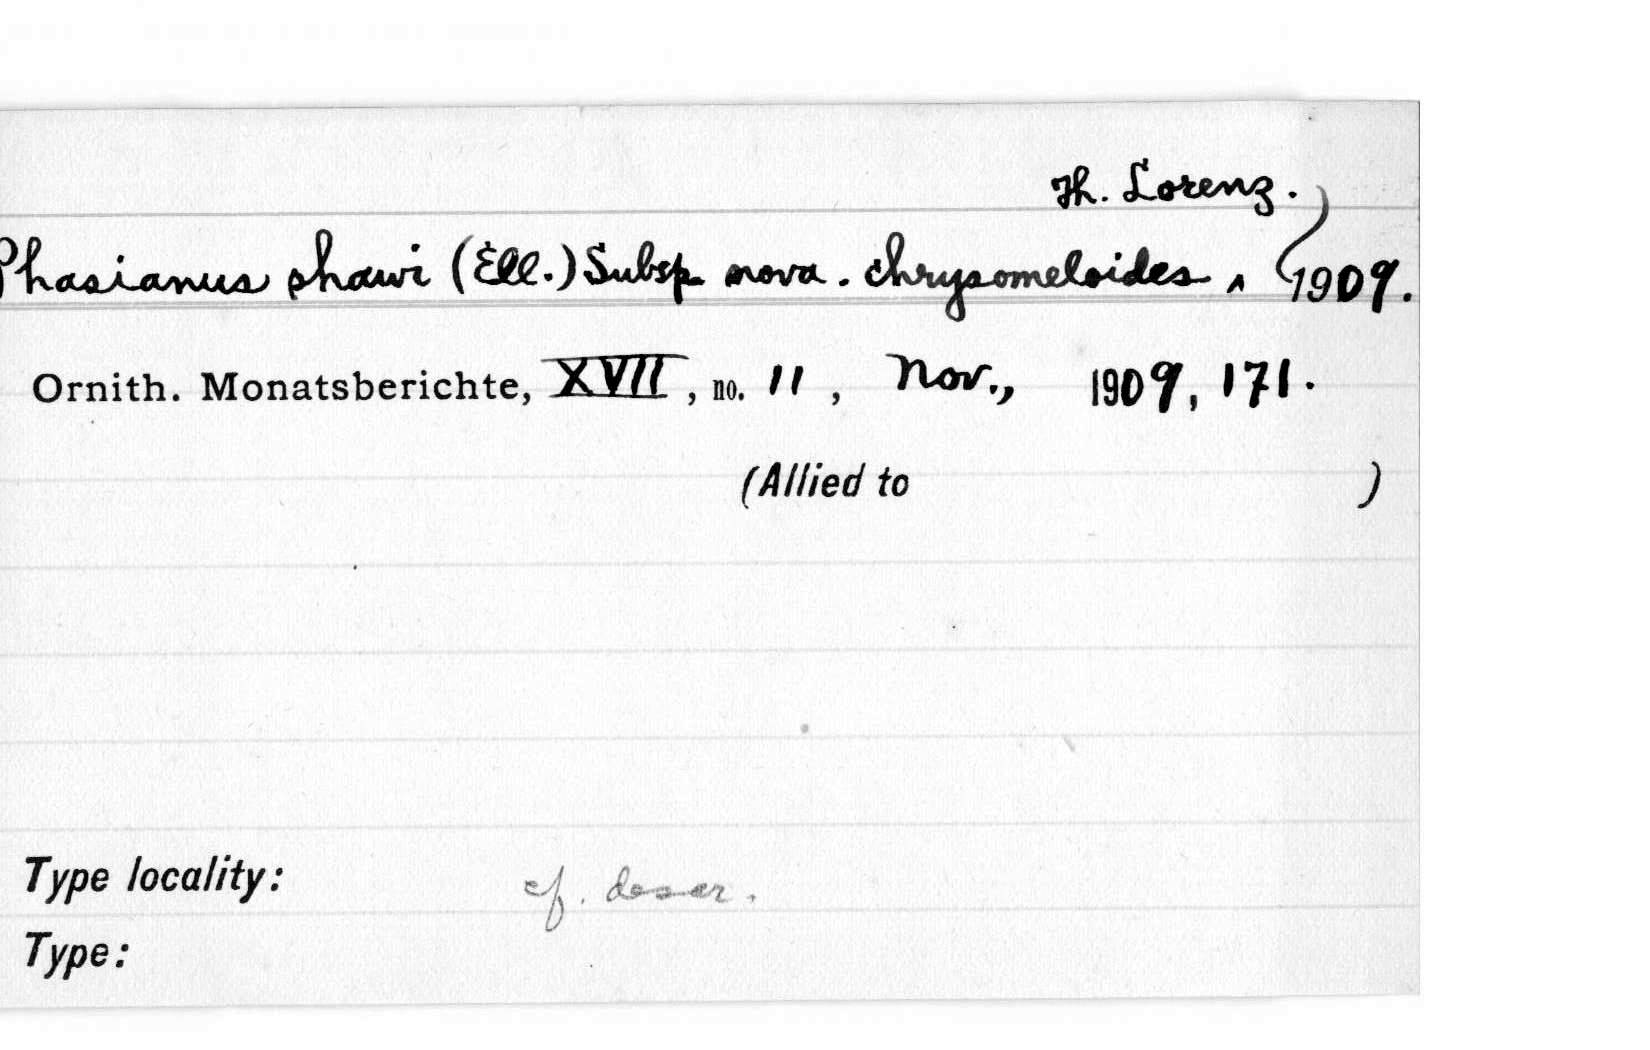 Th. Lorenz.
Phasianus shawi (Ell.) Subsp nova. chrysomeloides ^ 1909.
Ornith. Monatsberichte, XVII, no. 11, Nov., 1909, 171.
(Allied to )
Type locality: cf. descr.
Type: